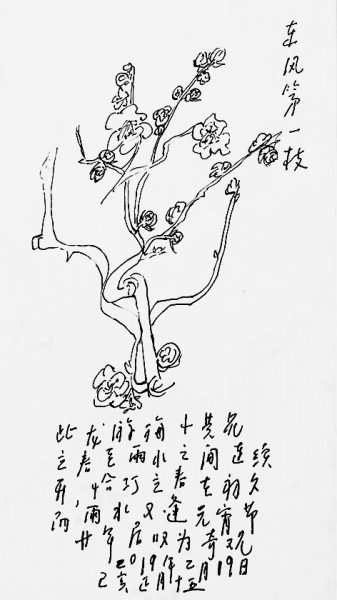 东风第一枝
此龙游梅十其花
立春至雨水之间连续
开，恰巧立春在初夕
而雨水又逢元宵节
廿年居以为奇观
2019年2月19日
己亥正月十五